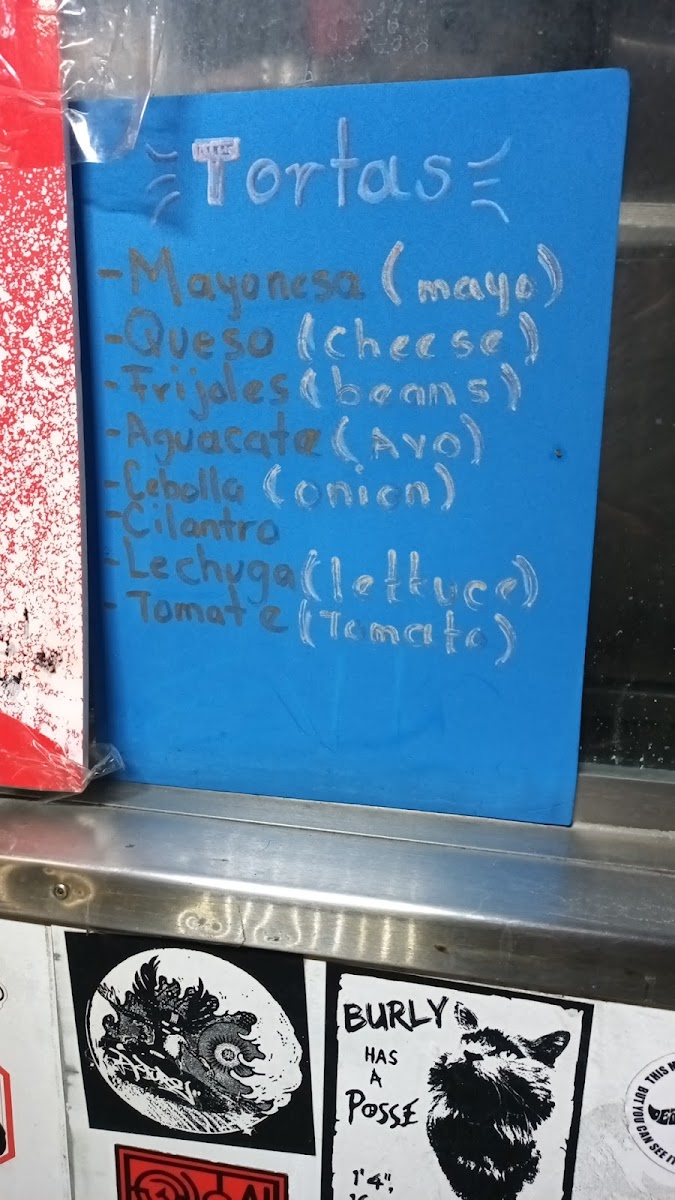 Tortas
- Mayonesa (mayo)
- Queso (cheese)
- Frijoles (beans)
- Aguacate (Avo)
- Cebolla (onion)
- Cilantro
- Lechuga (lettuce)
- Tomate (Tomato)
BURLY
HAS
A
POSSE
1'4",
THIS BUT YOU CAN SEE